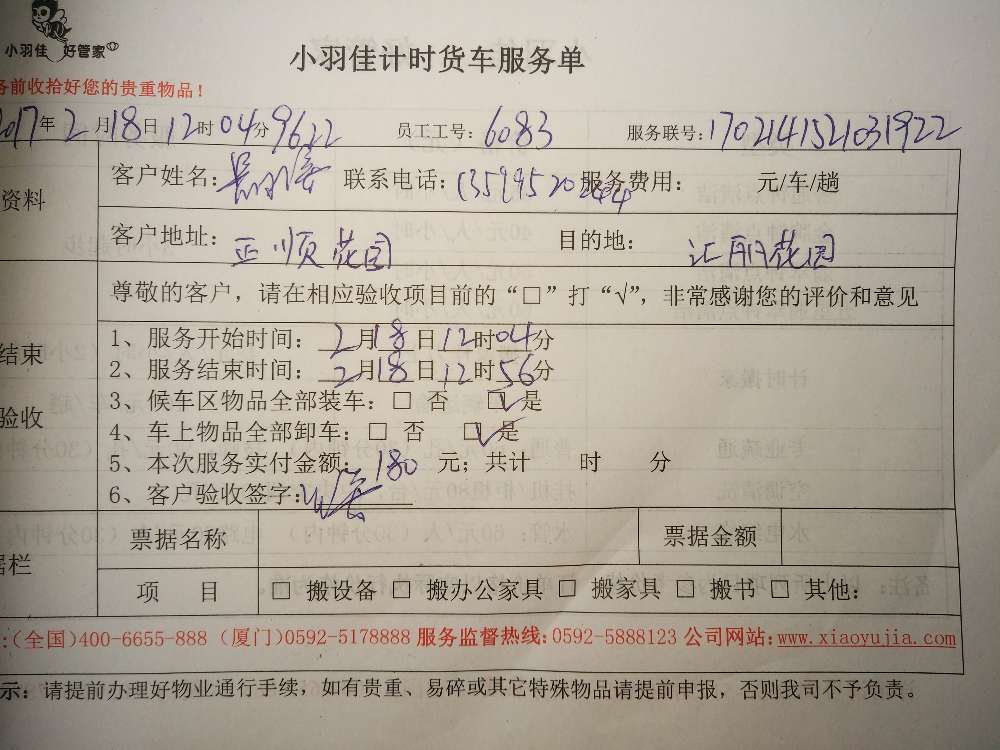 小羽佳 好管家
小羽佳计时货车服务单
务前收拾好您的贵重物品！
2017年2月18日12时04分9622 员工工号：6083 服务联号：1702141521031922
资料
客户姓名： 联系电话：13599520244 服务费用： 元/车/趟
客户地址：正顺花园 目的地：汇丽花园
尊敬的客户，请在相应验收项目前的“□”打“√”，非常感谢您的评价和意见
结束
验收
1、服务开始时间：2月18日12时04分
2、服务结束时间：2月18日12时56分
3、候车区物品全部装车：□ 否 ☑ 是
4、车上物品全部卸车：□ 否 ☑ 是
5、本次服务实付金额：180 元；共计 时 分
6、客户验收签字：
据栏
票据名称 票据金额
项 目 □ 搬设备 □ 搬办公家具 □ 搬家具 □ 搬书 □ 其他：
:(全国)400-6655-888 (厦门)0592-5178888 服务监督热线:0592-5888123 公司网站:www.xiaoyujia.com
示：请提前办理好物业通行手续，如有贵重、易碎或其它特殊物品请提前申报，否则我司不予负责。